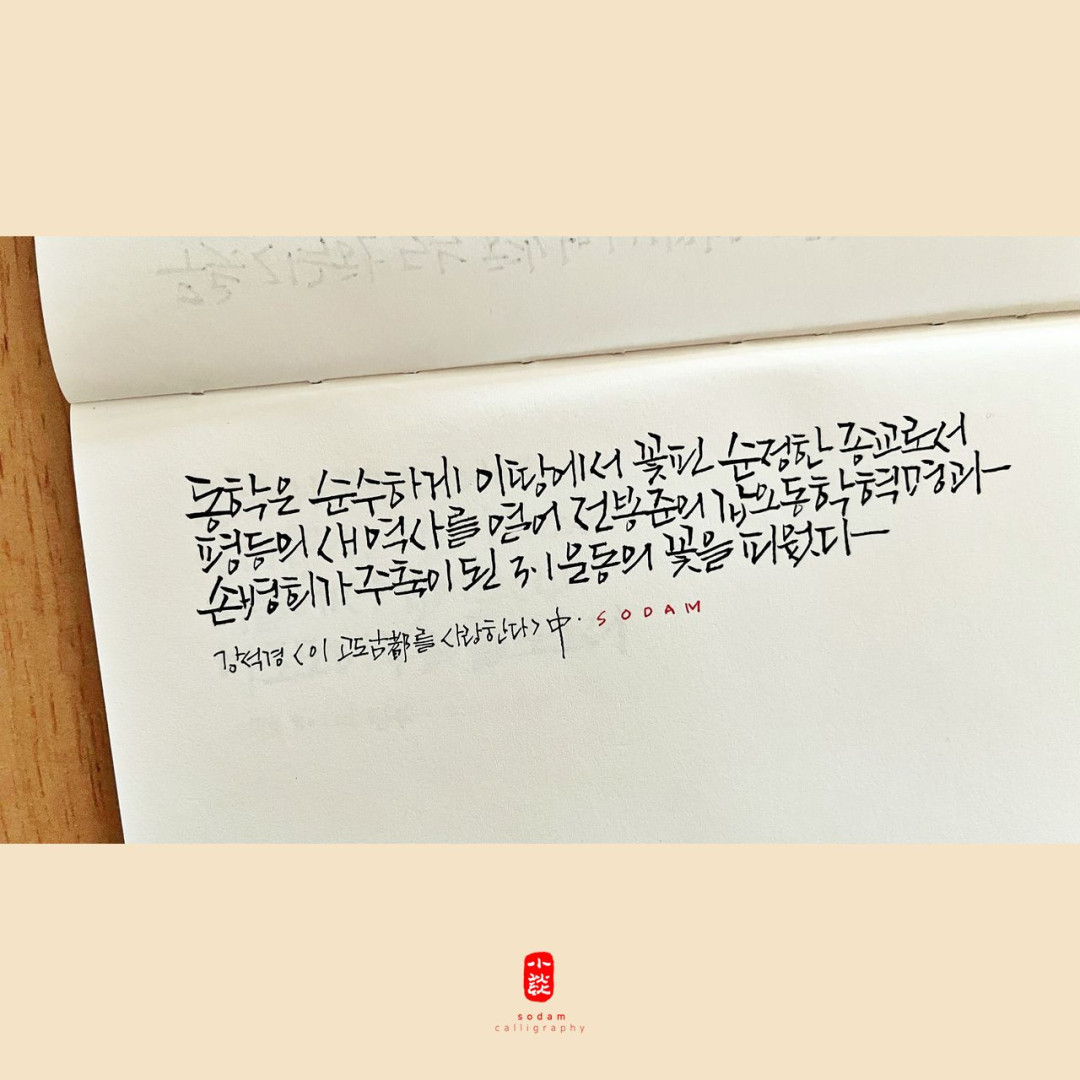 동학은 순수하게 이땅에서 꽃핀 순정한 종교로서
평등의 새역사를 열어 전봉준의 갑오동학혁명과
손병희가 주축이 된 3·1운동의 꽃을 피웠다
강석경 <이 고도古都를 사랑한다> 中. SODAM
小談
sodam
calligraphy